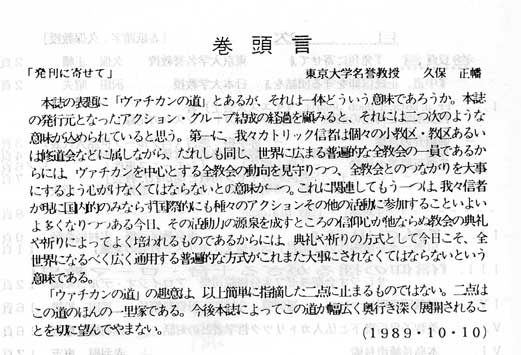 巻頭言
「発刊に寄せて」 東京大学名誉教授 久保 正幡
本誌の表題に「ヴァチカンの道」とあるが、それは一体どういう意味であろうか。本誌
の発行元となったアクション・グループ結成の経過を顧みると、それには二つ次のような
意味が込められていると思う。第一に、我々カトリック信者は個々の小教区・教区あるい
は修道会などに属しながら、だれしも同じ、世界に広まる普遍的な全教会の一員であるか
らには、ヴァチカンを中心とする全教会の動向を見守りつつ、全教会とのつながりを大事
にするよう心がけなくてはならないとの意味が一つ。これに関連してもう一つは、我々信者
が現に国内的のみならず国際的にも種々のアクションその他の活動に参加することいよい
よ多くなりつつある今日、その活動力の源泉を成すところの信仰心が他ならぬ教会の典礼
や祈りによってよく培われるものであるからには、典礼や祈りの方式として今日こそ、全
世界になるべく広く通用する普遍的な方式がこれまた大事にされなくてはならないという
意味である。
「ヴァチカンの道」の趣意は、以上簡単に指摘した二点に止まるものではない。二点は
この道のほんの一里塚である。今後本誌によってこの道が幅広く奥行き深く展開されるこ
とを切に望んでやまない。 (1989・10・10)